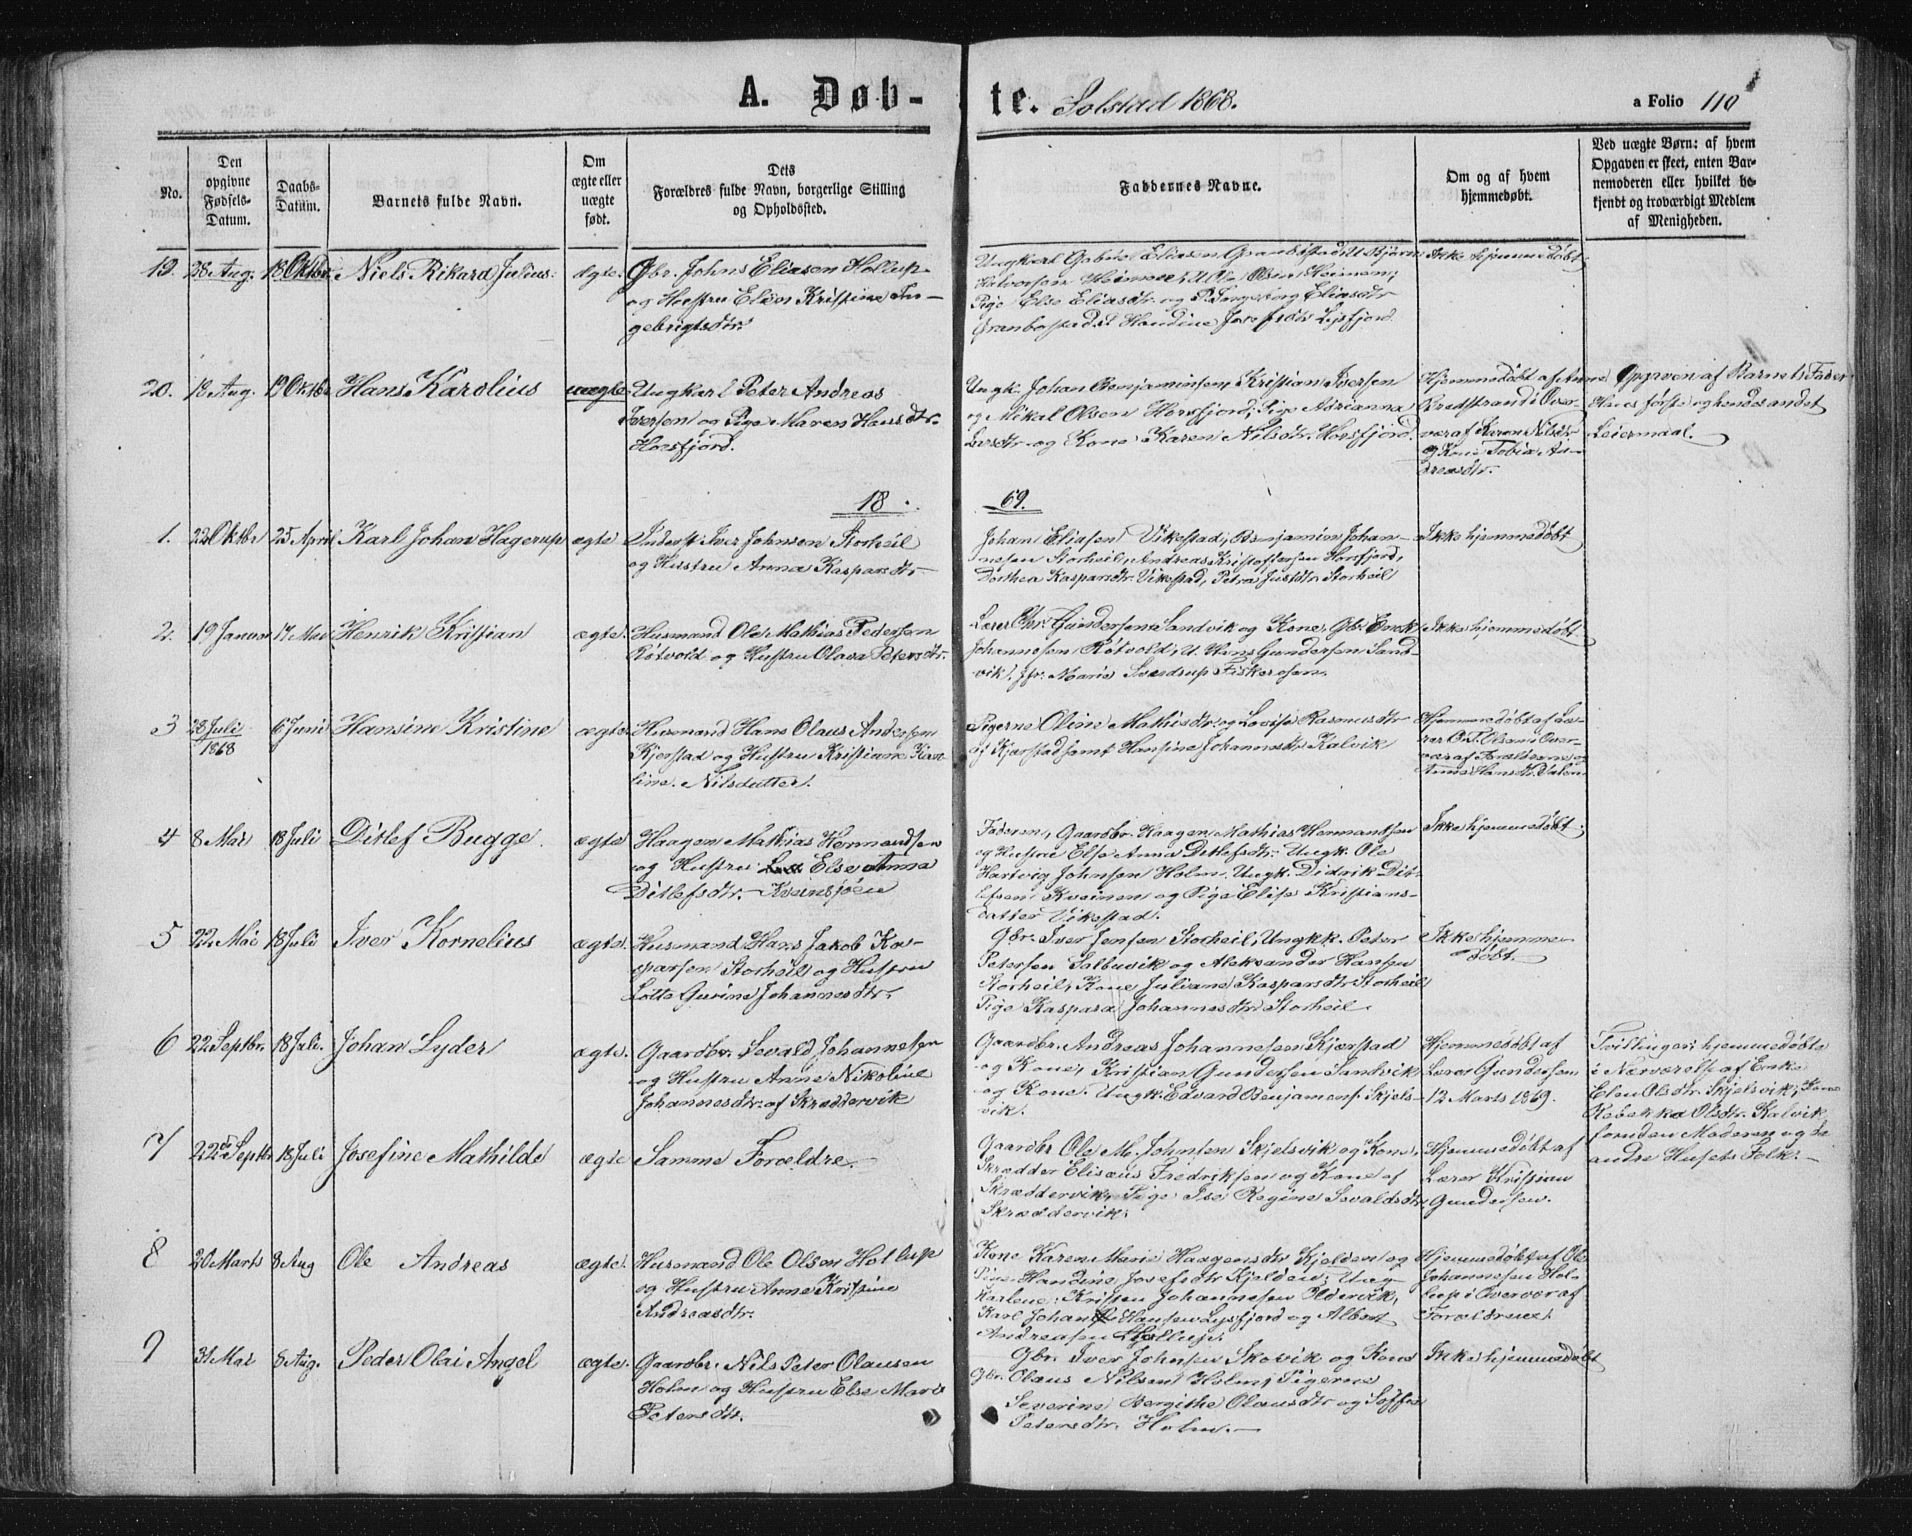 A. Døb- te. Solstad 1868. a Folio 110
No.
Den opgivne Fødsels-Datum.
Daabs-Datum.
Barnets fulde Navn.
Om ægte eller uægte født.
Dets Forældres fulde Navn, borgerlige Stilling og Opholdssted.
Faddernes Navne.
Om og af hvem hjemmedøbt.
Ved uægte Børn: af hvem Opgaven er skeet, enten Barnemoderen eller hvilket bekjendt og troværdigt Medlem af Menigheden.
19. 28 Aug. 18 Oktbr. Niels Rikard Julius. ægte.
Gbr. Johns Eliasen Hollup
og Hustru Elen Kristine In-
gebrigtsdtr.
Ungkarl Gabriel Eliasen Granbostad, U. Bjørn
Halvorsen Heimen, U. Ole Olsen Heimen,
Pige Else Eliasdtr. og P. Ingeborg Eliasdtr
Granbostad, Handine Josefsdtr Lysfjord
Ikke hjemmedøbt
20. 12 Aug. 19 Oktbr Hans Karolius uægte
Ungkarl Peter Andreas
Iversen og Pige Maren Hansdtr.
Horsfjord.
Ungk. Johan Benjaminsen, Kristian Iversen
og Mikal Olsen Horsfjord, Pige Adrianna
Larsdtr. og Kone Karen Nilsdtr. Horsfjord.
Hjemmedøbt af Anne
Bredstrand i Over-
vær af Karen Nilsdtr
og Kone Tobia An-
dreasdtr.
Opgiven af Barnets Fader
Hans første og hendes andet
Leiermaal.
18 69.
1. 22 Oktbr 25 April Karl Johan Hagerup ægte
Inderst Iver Johnsen Storheil
og Hustru Anna Kaspersdtr
Johan Eliasen Vikestad, Benjamin Johan-
nesen Storheil, Andreas Kristoffersen Horsfjord,
Dorthea Kaspersdtr. Vikestad, Petra Justdtr Storheil
Ikke hjemmedøbt
2. 19 Januar 17 Mai Henrik Kristian ægte.
Husmand Ole Mathias Pedersen
Røtvold og Hustru Olava Petersdtr.
Lærer Chr. Gundersen Sandvik og Kone, Gbr. Enok
Johannesen Røtvold, U. Hans Gundersen Sand-
vik, Jfr. Marie Sverdrup Fiskerosen.
Ikke hjemmedøbt
3 28 Juli 1868 6 Juni Hansine Kristine ægte
Husmand Hans Olaus Andersen
Kjerstad og Hustru Kristiane Karo-
line Nilsdatter.
Pigerne Oline Mathisdtr. og Lovise Rasmusdtr
af Kjærstad samt Hansine Johannesdtr. Kalvik
Hjemmedøbt af Læ-
rer O. T. Olsen i Over-
vær af Forældrene og
Anna Hansdtr. Dalen
4 8 Mai 18 Juli Ditlef Bugge. ægte
Haagen Mathias Hermandsen
og Hustru Else Anna
Ditlefsdtr. Kveinsjøen
Faderen, Gaardbr. Haagen Mathias Hermandsen
og Hustru Else Anna Ditlefsdtr. Ungk. Ole
Hartvig Johnsen Holm, Ungk. Didrik Dit-
lefsen Kveinen og Pige Elise Kristians-
datter Vikestad.
Ikke hjemmedøbt
5 22 Mai 18 Juli Iver Kornelius ægte.
Husmand Hans Jakob Ka-
spersen Storheil og Hustru
Lotte Gurine Johannesdtr.
Gbr. Iver Jensen Storheil, Ungkk. Peter
Petersen Salbuvik og Aleksander Hansen
Storheil, Kone Juliane Kaspersdtr. Storheil
Pige Kaspara Johannesdtr. Storheil
Ikke hjemme-
døbt.
6 22 Septbr. 18 Juli. Johan Lyder ægte.
Gaardbr. Sevald Johannesen
og Hustru Anne Nikoline
Johannesdtr. af Skræddervik
Gaardbr. Andreas Johannesen Kjærstad
og Kone, Kristian Gundersen Sandvik
og Kone. Ungk. Edvard Benjamens. Skjels-
vik.
Hjemmedøbt af
Lærer Gundersen
12 Marts 1869.
Tvillinger; hjemmedøbte
i Nærværelse af Enke
Elen Olsdtr. Skjelsvik, Kone
Rebekka Olsdtr. Kalvik
foruden Moderen og de
andre Husets Folk.
7 22 Septbr 18 Juli Josefine Mathilde ægte
Samme Forældre.
Gaardbr Ole M. Johnsen Skjelsvik og Kone,
Skrædder Elisæus Fredriksen og Kone af
Skræddervik, Pige Ise Regine Sevaldsdtr
Skræddervik.
Hjemmedøbt af
Lærer Kristian
Gundersen.
8 20 Marts 8 Aug Ole Andreas ægte.
Husmand Ole Olsen Hollup
og Hustru Anne Kristine
Andreasdtr.
Kone Karen Marie Haagensdtr Kjelden og
Pige Handine Josefsdtr Kjelden; Ung-
karlene, Kristen Johannesen Oldervik,
Karl Johan Hansen Lysfjord og Albert
Andreasen Hollup.
Hjemmedøbt af Ole
Johannesen Hol-
lup i Overvær af
Forældrene.
9 31 Mai 8 Aug. Peder Olai Angel ægte.
Gaardbr. Nils Peter Olausen
Holm og Hustru Else Marie
Petersdtr.
Gbr. Iver Johnsen Skovik og Kone
Gbr. Olaus Nilsen Holm, Pigerne
Severine Bergithe Olausdtr og Soffie
Petersdtr. Holm.
Ikke hjemmedøbt